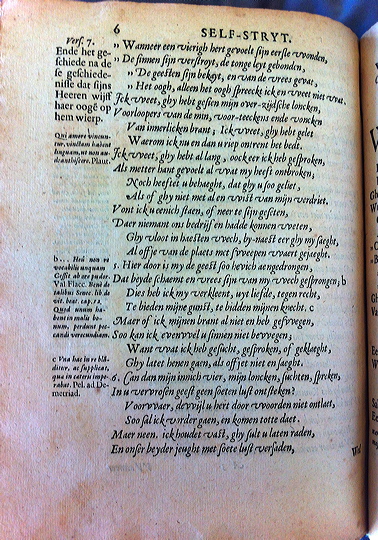 6 SELF-STRYT.
Vers. 7.
Ende het ge-
schiede na de
se geschiede-
nisse dat sijns
Heeren wijff
haer ooge op
hem wierp.
Qui amore vincun-
tur, vinctum habent
linguam, ut non au-
deant hiscere. Plaut.
b . . . Heu non re
vocabilis unquam
Cessit ab ore pudor.
Val Flacc. Benè de
talibus Senec. lib. de
vit. beat. cap. 12.
Quod unum ha-
bent in malis bo-
num, perdunt pec-
candi verecundiam.
c Una hac in re blã-
ditur, ac supplicat,
qua in cateris impe-
rabat. Pel. ad De-
metriad.
„ Wanneer een vierigh hert gevoelt sijn eerste wonden,
„ De sinnen sijn verstroyt, de tonge leyt gebonden,
„ De geesten sijn bekayt, en van de vrees gevat,
„ Het oogh, alleen het oogh spreeckt ick en weet niet wat.
Ick weet, ghy hebt gesien mijn over-zijdsche loncken,
Voorloopers van de min, voor-teeckens ende voncken
Van innerlicken brant, Ick weet, ghy hebt gelet
Waerom ick nu en dan u riep ontrent het bedt.
Ick weet, ghy hebt al lang, oock eer ick heb gesproken,
Als metter hant gevoelt al wat my heeft ontbroken,
Noch heeftet u behaeght, dat ghy u soo geliet,
Als of ghy niet met al en wist van mijn verdriet.
Vont ick u eenich staen, of neer te sijn geseten,
Daer niemant ons bedrijf en hadde konnen weten,
Ghy vloot in haesten wech, by-naest eer ghy my saeght,
Al of je van de plaets met sweepen waert gejaeght.
5. Hier door is my de geest soo hevich aengedrongen,
Dat beyde schaemt en vrees sijn van my wech gesprongen; b
Dies heb ick my verkleent, uyt liefde, tegen recht,
Te bieden mijne gunst, te bidden mijnen knecht. c
Maer of ick mijnen brant al niet en heb geswegen,
Soo kan ick evenwel u sinnen niet bewegen;
Want wat ick heb gesicht, gesproken, of geklaeght,
Ghy latet henen gaen, als of jet niet en saeght.
6. Can dan mijn innich vier, mijn loncken, suchten, spreken,
In u vervrosen geest geen soeten lust ontsteken?
Voorwaer, dewijl u hert door woorden niet ontlaet,
Soo sal ick verder gaen, en komen totte daet.
Maer neen. ick houdet vast, ghy sult u laten raden,
En onser beyder jeught met soete lust versaden,